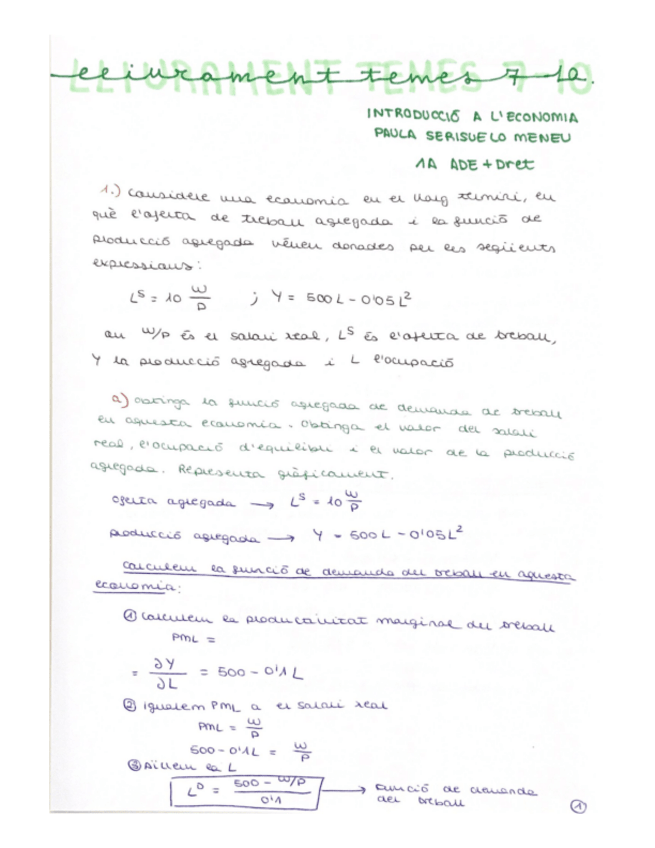 LLIURAMENT TEMES 7-10.
INTRODUCCIÓ A L'ECONOMIA
PAULA SERISUELO MENEU
1A ADE + Dret
1.) Considere una economia en el llarg termini, en
què l'oferta de treball agregada i la funció de
producció agregada vénen donades per les següents
expressions:
L^S = 10 W/P ; Y = 500L - 0'05L²
on W/P és el salari real, L^S és l'oferta de treball,
Y la producció agregada i L l'ocupació
a) Obtinga la funció agregada de demanda de treball
en aquesta economia. Obtinga el valor del salari
real, l'ocupació d'equilibri i el valor de la producció
agregada. Representa gràficament.
oferta agregada → L^S = 10 W/P
producció agregada → Y = 500L - 0'05L²
Calculem la funció de demanda del treball en aquesta
economia:
① Calculem la productivitat marginal del treball
PML =
= ∂Y/∂L = 500 - 0'1L
② igualem PML a el salari real
PML = W/P
500 - 0'1L = W/P
③ Aïllem la L
L^D = (500 - W/P)/0'1 → Funció de demanda
del treball
①